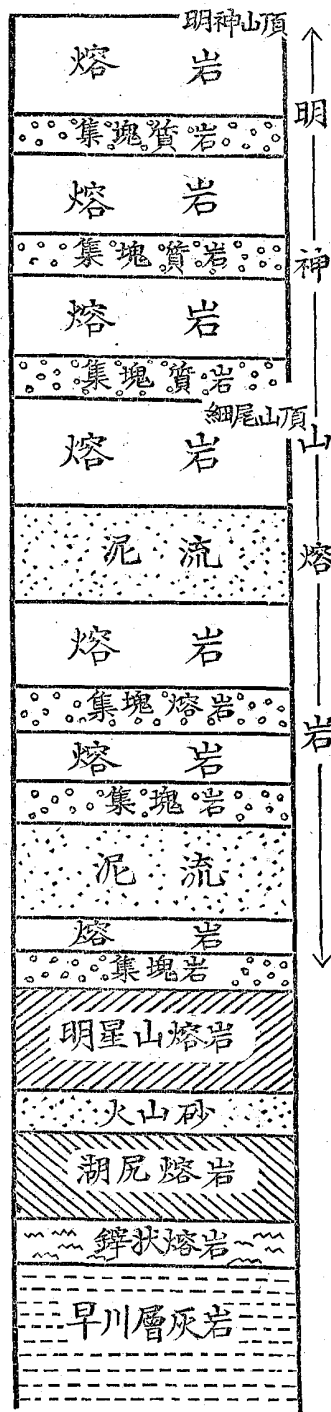 明神山頂
熔岩
集塊質岩
熔岩
集塊質岩
熔岩
集塊質岩
細尾山頂
熔岩
泥流
熔岩
集塊熔岩
熔岩
集塊岩
泥流
熔岩
集塊岩
明星山熔岩
火山砂
湖尻熔岩
鏵状熔岩
早川層灰岩
明神山熔岩